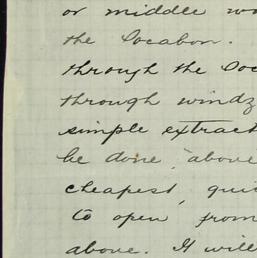 or middle wo
the Locabon.
through the Loc
through windz
simple extract
be done, above
cheapest, qui
to open from
above. It will